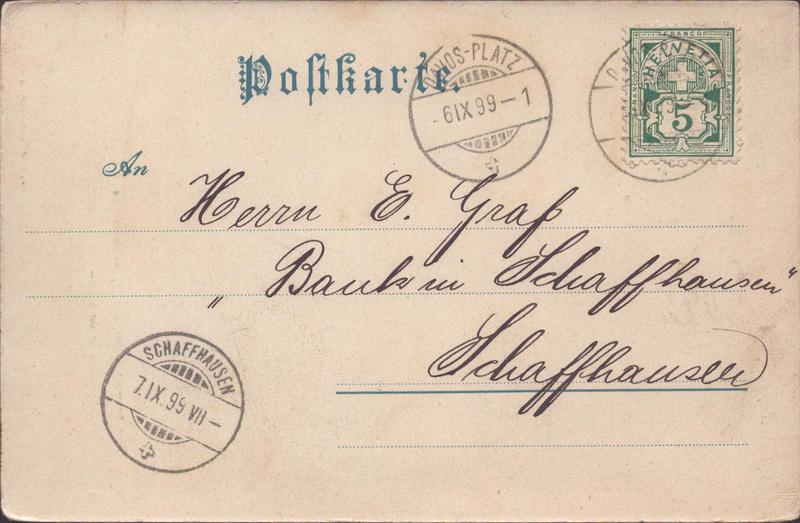 Postkarte.
DAVOS-PLATZ
6 IX 99 – 1
FRANCO
HELVETIA
5
An
Herrn E. Graf
„Bank in Schaffhausen"
Schaffhausen
SCHAFFHAUSEN
7. IX. 99 VII –